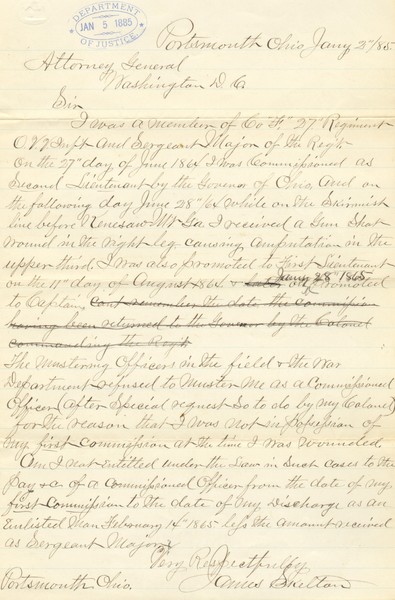 DEPARTMENT
JAN 5 1885
OF JUSTICE
Portsmouth Ohio Jany 2"/85
Attorney General
Washington D. C.
Sir
I was a member of Co "F" 27" Regiment
O.V.V Inft and Sergeant Major of the Regt
On the 27" day of June 1864 I was Commissioned as
Second Lieutenant by the Govenor of Ohio, and on
the following day June 28"/64 while on the Skirmist
line before Kenesaw Mt Ga. I received a Gun Shot
Wound in the right leg causing Amputation in the
upper third. I was also promoted to First Lieutenant
on the 11" day of August 1864. & on Jany 28" 1865 promoted
to Captain, cant remember the date the commission
having been returned to the Govenor by the Colonel
commanding the Regt
The Mustering Officers in the field & the War
Department refused to Muster me as a Commissioned
Officer (after Special request So to do by my Colonel)
for the reason that I was not in possession of
my first commission at the time I was wounded.
Am I not Entitled under the Law in Such cases to the
Pay & a. of a Commissioned Officer from the date of my
first Commission to the date of my Discharge as an
Enlisted Man February 14" 1865 less the amount received
as Sergeant Major
Very Respectfully
James Skelton
Portsmouth, Ohio.